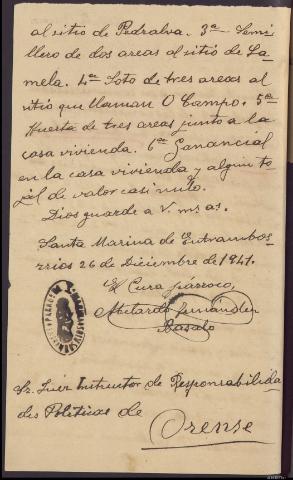 al sitio de Pedralva. 3ª Semi
llero de dos areas al sitio de La
mela. 4ª Soto de tres areas al
sitio que llaman O Campo. 5ª
Huerta de tres areas junto a la
casa vivienda. 6ª Ganancial
en la casa vivienda y algun to
jal de valor casi nulo.
Dios guarde a V. m. aˢ.
Santa Marina de Entrambos-
rrios 26 de Diciembre de 1941.
El Cura párroco,
Abelardo Fernández
Basalo
Sr. Juez Instructor de Responsabilida
des Politicas de
Orense